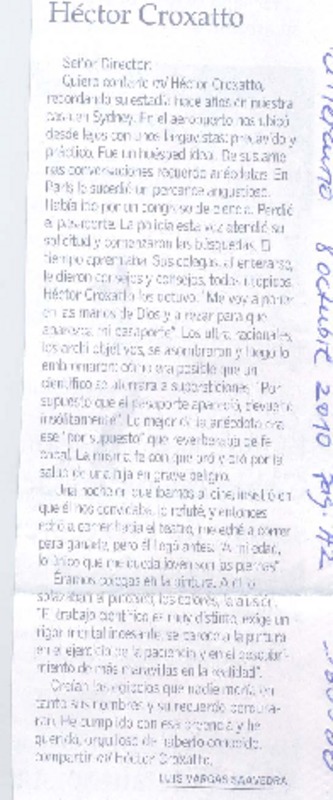 Héctor Croxatto
Señor Director:
Quiero contarle mi Héctor Croxatto,
recordando su estadía hace años en nuestra
casa en Sydney. En el aeropuerto nos ubicó
desde lejos con unos largavistas: precavido y
práctico. Fue un huésped ideal. De sus ame-
nas conversaciones recuerdo anécdotas. En
París le sucedió un percance angustioso.
Había ido por un congreso de ciencia. Perdió
el pasaporte. La policía esta vez atendió su
solicitud y comenzaron las búsquedas. El
tiempo apremiaba. Sus colegas, al enterarse,
le dieron consejos y consejos, todos utópicos.
Héctor Croxatto los detuvo: "Me voy a poner
en las manos de Dios y a rezar para que
aparezca mi pasaporte". Los ultra racionales,
los archi objetivos, se asombraron y luego lo
embromaron: cómo era posible que un
científico se aferrara a supersticiones. "Por
supuesto que el pasaporte apareció, devuelto
insólitamente". Lo mejor de la anécdota era
ese "por supuesto" que reverberaba de fe
La misma fe con que oró y oró por la
salud de una hija en grave peligro.
Una noche en que íbamos al cine, insistió en
que él nos convidaba, lo refuté, y entonces
echó a correr hacia el teatro, me eché a correr
para ganarle, pero él llegó antes. "A mi edad,
lo único que me queda joven son las piernas".
Éramos colegas en la pintura. A él lo
solazaban el pincelar, los colores, la ilusión.
"El trabajo científico es muy distinto, exige un
rigor mental incesante, se parece a la pintura
en el ejercicio de la paciencia y en el descubri-
miento de más maravillas en la realidad".
Creían los egipcios que nadie moría en
tanto sus nombres y su recuerdo perdura-
ran. He cumplido con esa creencia y he
querido, orgulloso de haberlo conocido,
compartir mi Héctor Croxatto.
LUIS VARGAS SAAVEDRA
8 octubre 2010 pág. A2